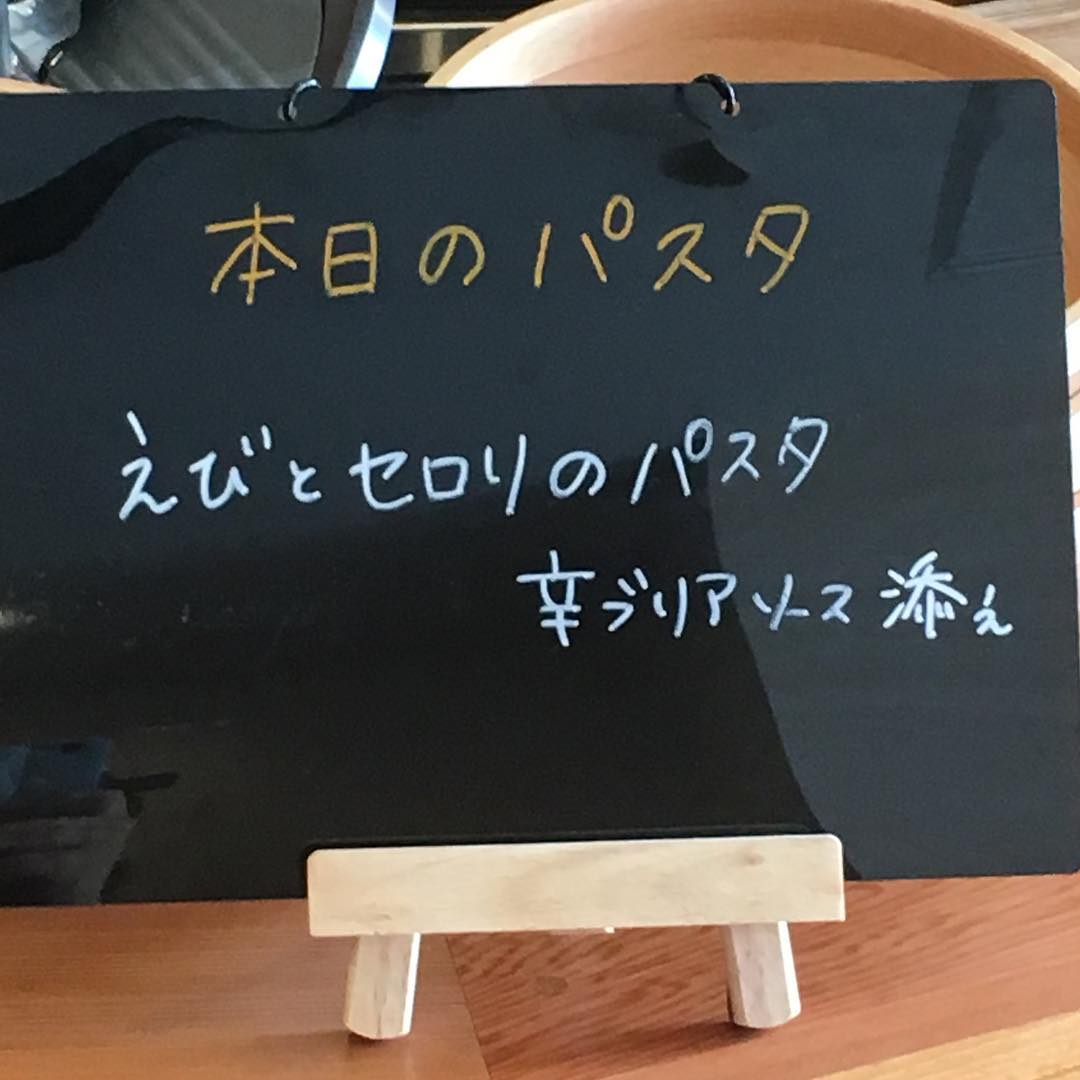 本日のパスタ
えびとセロリのパスタ
辛ジリアソース添え